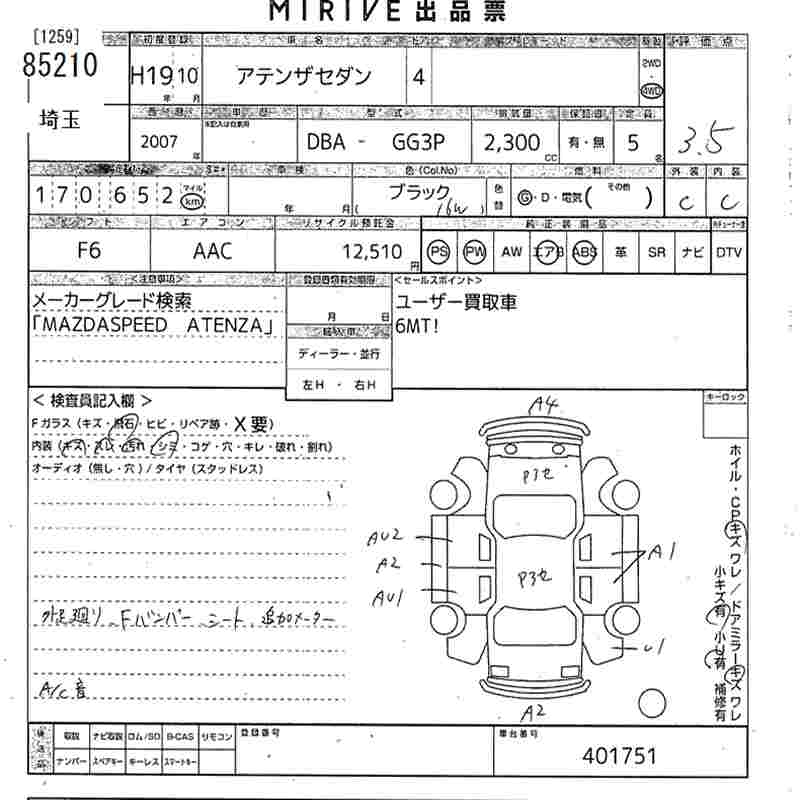 MIRIVE出品票
[1259]
85210
埼玉
初度登録 車名 ドア 評価点
H19 10 アテンザセダン 4
年 月
2WD
・
4WD
3.5
西暦 車歴 型式 排気量 保証書 定員
※記入は自家用
2007 年 DBA - GG3P 2,300 CC 有・無 5 名
車検 色(Col.No) 燃料 外装 内装
170652 マイル km 年 月 ブラック ( 16W ) 色替 G・D・電気( その他 ) C C
シフト エアコン リサイクル預託金 純正装備品
F6 AAC 12,510 円 PS PW AW エアB ABS 革 SR ナビ DTV
<注意事項> 登録書類有効期限 <セールスポイント>
メーカーグレード検索
「MAZDASPEED ATENZA」
月 日
輸入車
ディーラー・並行
左H・右H
ユーザー買取車
6MT!
<検査員記入欄>
Fガラス(キズ・飛石・ヒビ・リペア跡・X要)
内装(キズ・スレ・汚れ・シミ・コゲ・穴・キレ・破れ・割れ)
オーディオ(無し・穴)/タイヤ(スタッドレス)
外足廻り Fバンパー シート 追加メーター
A/C音
キーロック
A4
P3セ
AU2
A2
AU1
P3セ
A1
U1
A2
ホイル・CPキズワレ/ドアミラーキズワレ
小キズ有 小U有 補修有
取説 ナビ取説 ロム/SD B-CAS リモコン
ナンバー スペアキー キーレス スマートキー
登録番号
車台番号
401751